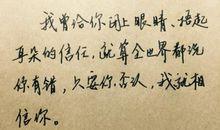 我曾给你闭上眼睛、捂起
耳朵的信任,就算全世界都说
你有错,只要你否认,我就相
信你。